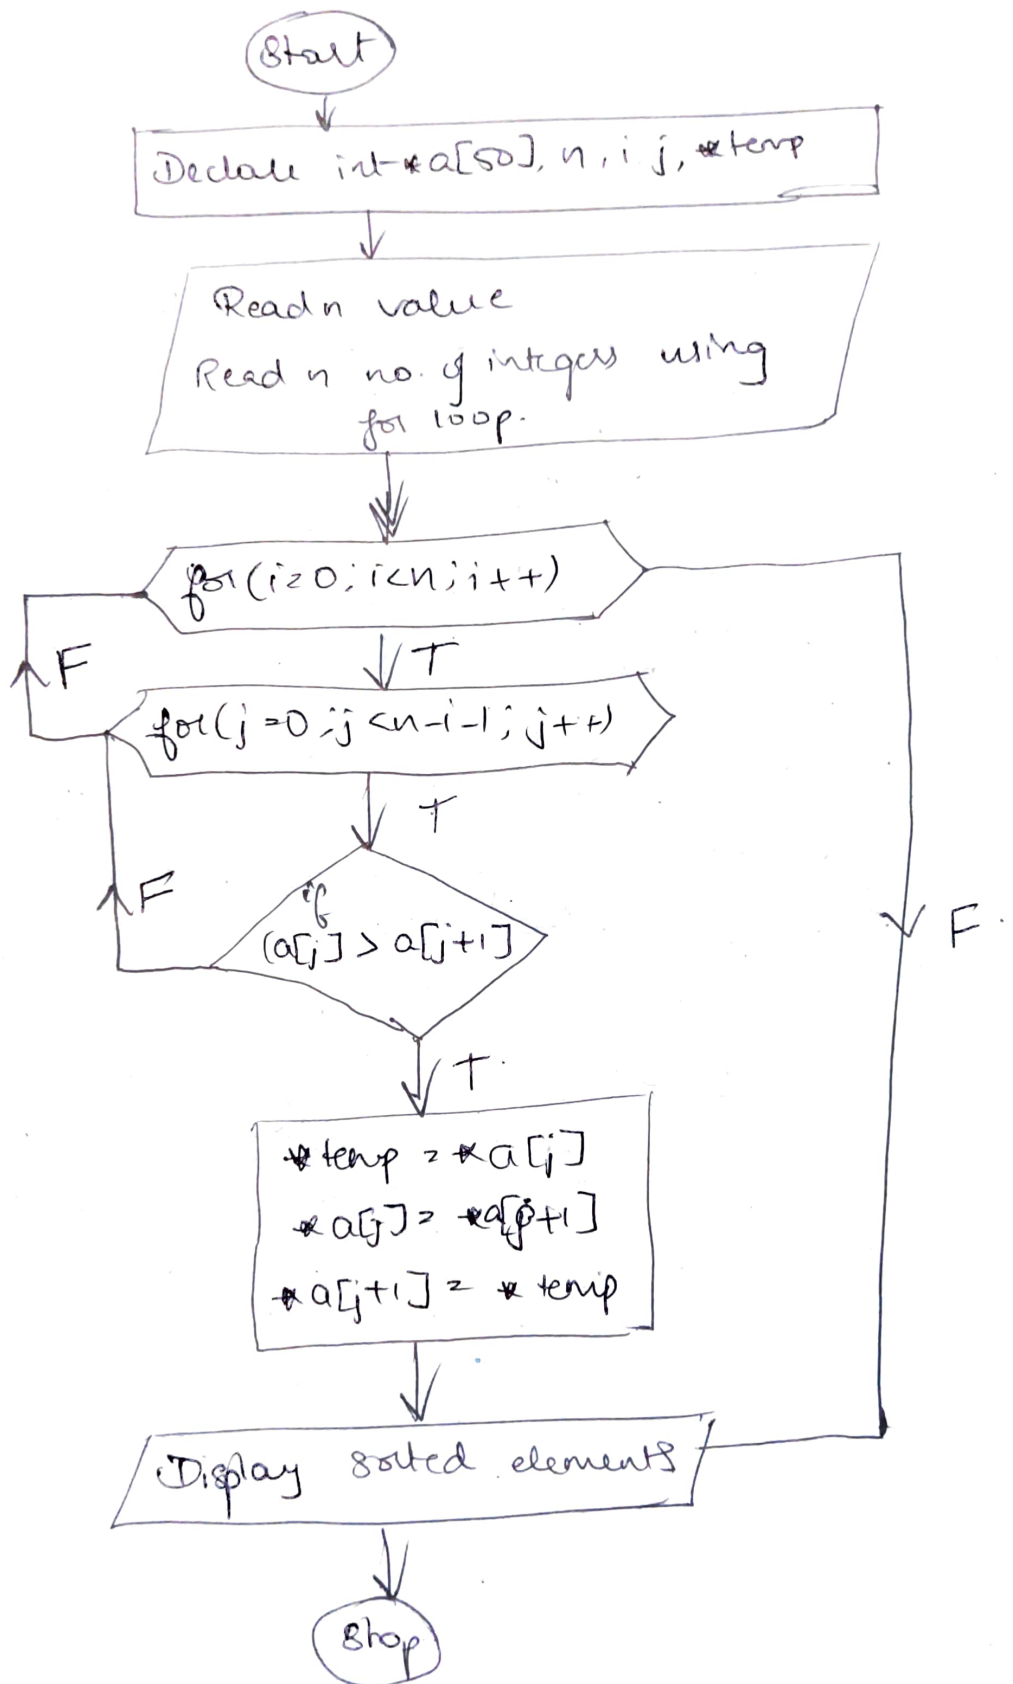 Start
Declare int *a[50], n, i j, *temp
Read n value
Read n no. of integers using
for loop.
for(i=0; i<n; i++)
F
T
for(j=0; j<n-i-1; j++)
T
F
if
(a[j] > a[j+1]
F.
T.
*temp = *a[j]
*a[j] = *a[j+1]
*a[j+1] = * temp
Display sorted elements
Stop